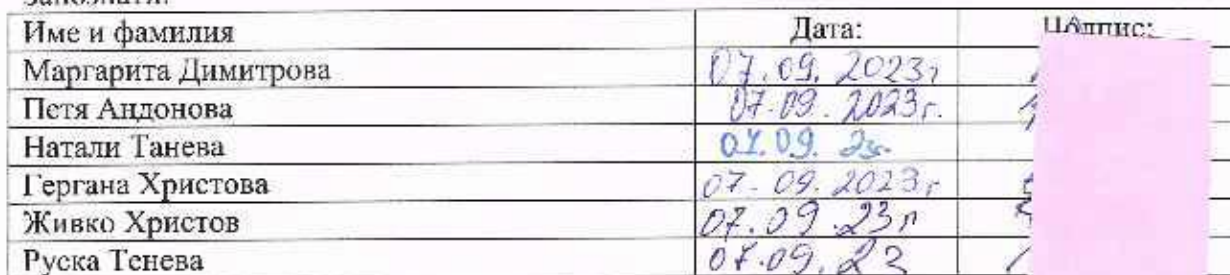 Име и фамилия Дата: Подпис:
Маргарита Димитрова 07.09.2023г
Петя Андонова 07.09.2023г.
Натали Танева 07.09.
Гергана Христова 07.09.2023г
Живко Христов 07.09.23г
Руска Тенева 07.09.23